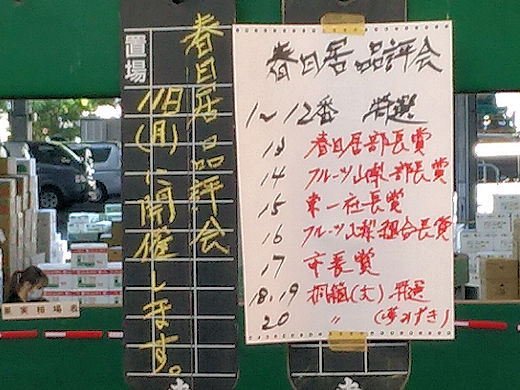 置場
春日居品評会
11日(月)に開催します。
春日居品評会
1～12番 特選
13 春日居部長賞
14 フルーツ山梨部長賞
15 東一社長賞
16 フルーツ山梨組合長賞
17 市長賞
18.19 桐箱(大) 特選
20 〃 (夢みずき)
果実相場表